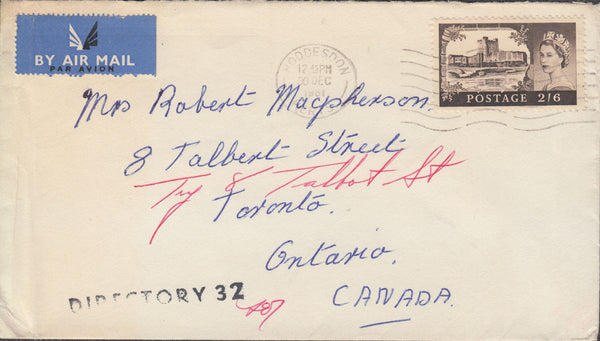 BY AIR MAIL
PAR AVION
HODDESDON
12.15PM
30 DEC
1961
POSTAGE 2/6
Mrs Robert Macpherson.
8 Talbert Street
Try 8 Talbot St
Toronto.
Ontario.
CANADA.
DIRECTORY 32